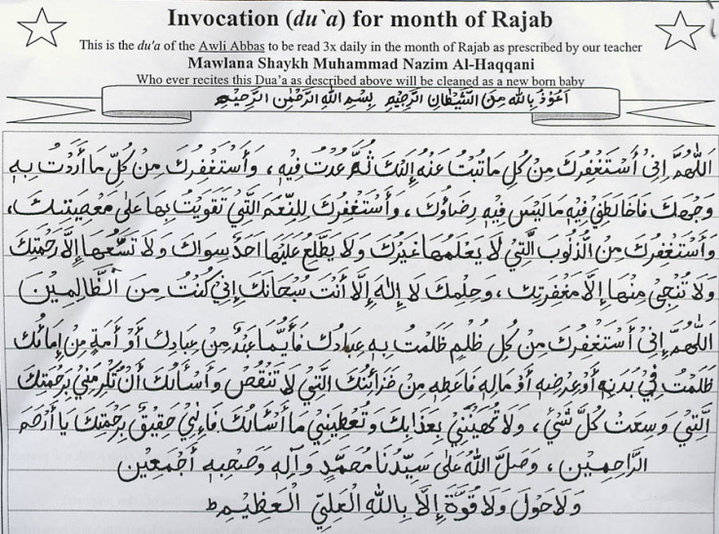 Invocation (du`a) for month of Rajab
This is the du'a of the Awli Abbas to be read 3x daily in the month of Rajab as prescribed by our teacher
Mawlana Shaykh Muhammad Nazim Al-Haqqani
Who ever recites this Dua’a as described above will be cleaned as a new born baby
اَعُوْذُ بِاللهِ مِنَ الشَّيْطَانِ الرَّجِيْمِ بِسْمِ اللهِ الرَّحْمٰنِ الرَّحِيْمِ
اَللّٰهُمَّ اِنِّيْ أَسْتَغْفِرُكَ مِنْ كُلِّ مَا تُبْتُ عَنْهُ إِلَيْكَ ثُمَّ عُدْتُ فِيْهِ ، وَأَسْتَغْفِرُكَ مِنْ كُلِّ مَا أَرَدْتُ بِهِ
وَجْهَكَ فَخَالَطَنِيْ فِيْهِ مَا لَيْسَ فِيْهِ رِضَاؤُكَ ، وَأَسْتَغْفِرُكَ لِلنِّعَمِ الَّتِيْ تَقَوَّيْتُ بِهَا عَلٰى مَعْصِيَتِكَ ،
وَأَسْتَغْفِرُكَ مِنَ الذُّنُوْبِ الَّتِيْ لَا يَعْلَمُهَا غَيْرُكَ وَلَا يَطَّلِعُ عَلَيْهَا اَحَدٌ سِوَاكَ وَلَا تَسَعُهَا إِلَّا رَحْمَتُكَ
وَلَا تُنْجِيْ مِنْهَا إِلَّا مَغْفِرَتُكَ ، وَحِلْمُكَ لَا إِلٰهَ إِلَّا أَنْتَ سُبْحَانَكَ إِنِّيْ كُنْتُ مِنَ الظَّالِمِيْنَ
اَللّٰهُمَّ اِنِّيْ أَسْتَغْفِرُكَ مِنْ كُلِّ ظُلْمٍ ظَلَمْتُ بِهِ عِبَادَكَ فَأَيُّمَا عَبْدٍ مِنْ عِبَادِكَ أَوْ أَمَةٍ مِنْ إِمَائِكَ
ظَلَمْتُ فِيْ بَدَنِهِ أَوْ عِرْضِهِ أَوْ مَالِهِ فَاعْطِهِ مِنْ خَزَائِنِكَ الَّتِيْ لَا تَنْقُصُ وَأَسْأَلُكَ أَنْ تُكْرِمَنِيْ بِرَحْمَتِكَ
الَّتِيْ وَسِعَتْ كُلَّ شَيْءٍ ، وَلَا تُهِيْنَنِيْ بِعَذَابِكَ وَتُعْطِيَنِيْ مَا أَسْأَلُكَ فَإِنِّيْ حَقِيْقٌ بِرَحْمَتِكَ يَا أَرْحَمَ
الرَّاحِمِيْنَ ، وَصَلَّى اللهُ عَلٰى سَيِّدِنَا مُحَمَّدٍ وَآلِهِ وَصَحْبِهِ أَجْمَعِيْنَ
وَلَا حَوْلَ وَلَا قُوَّةَ إِلَّا بِاللهِ الْعَلِيِّ الْعَظِيْمِ